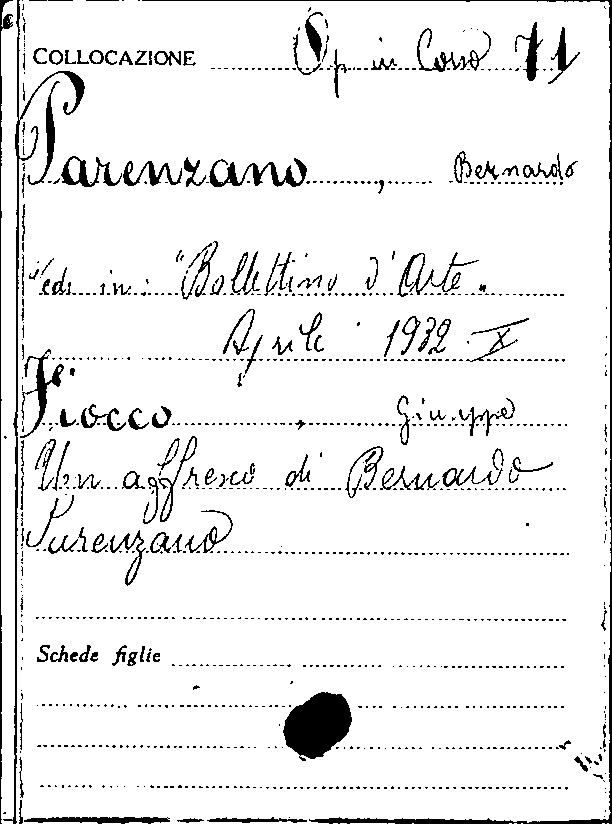 COLLOCAZIONE Op in Corso 71
Parenzano, Bernardo
Vedi in: "Bollettino d'Arte"
Aprile 1932 X
Fiocco, Giuseppe
Un affresco di Bernardo
Parenzano
Schede figlie